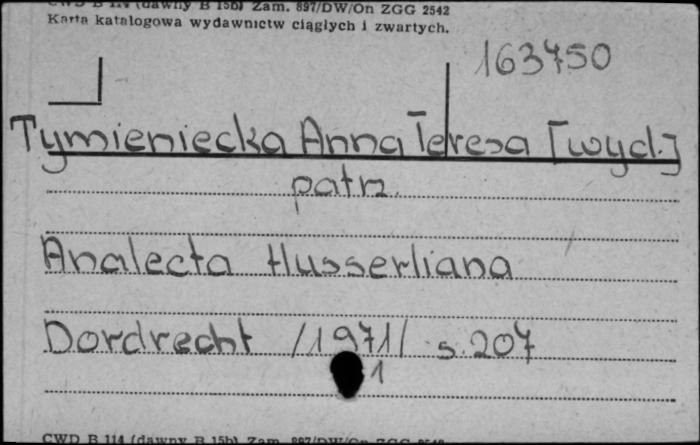 CWD B 114 (dawny B 15b) Zam. 897/DW/On ZGG 2542
Karta katalogowa wydawnictw ciągłych i zwartych.
163750
Tymieniecka Anna Teresa [wyd.]
patrz
Analecta Husserliana
Dordrecht /1971/ s. 207
1
CWD B 114 (dawny B 15b) Zam. 897/DW/On ZGG 2542